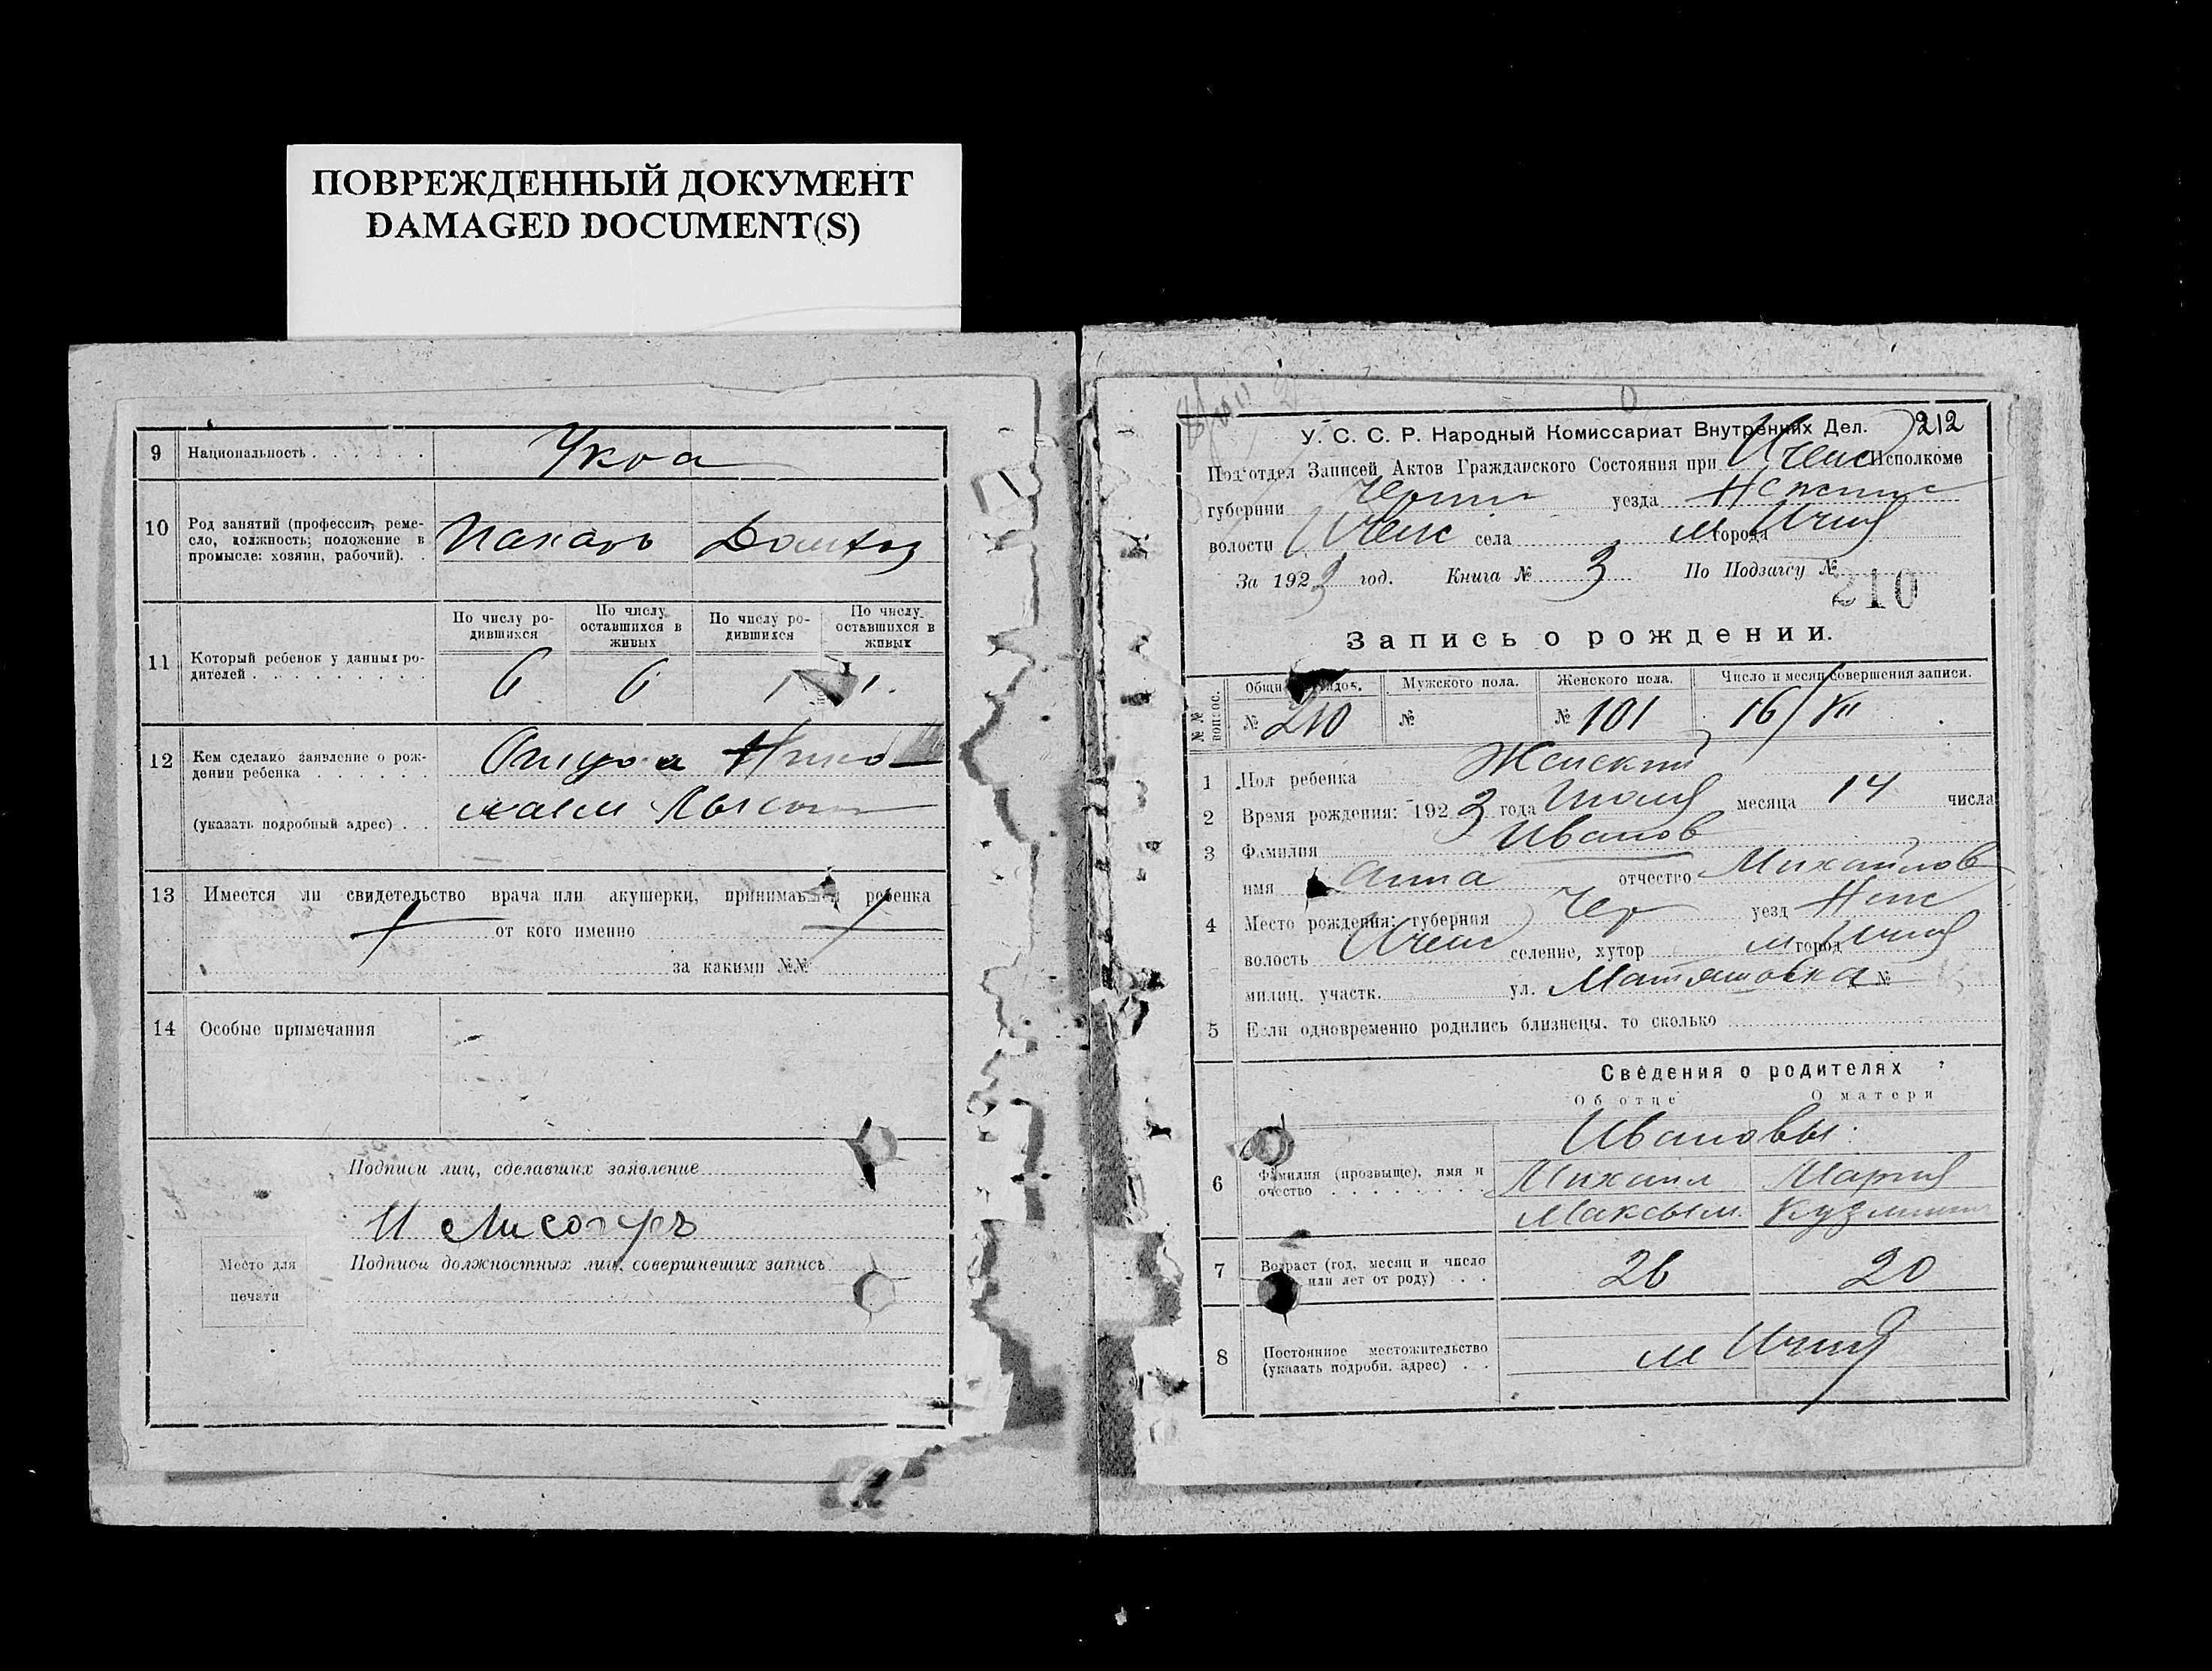 ПОВРЕЖДЕННЫЙ ДОКУМЕНТ
DAMAGED DOCUMENT(S)
9 Национальность . . . . . . Укра
10 Род занятий (профессия, реме-
сло, должность; положение в
промысле: хозяин, рабочий). .
11 Который ребенок у данных ро-
дителей . . . . . . . . .
По числу ро-
дившихся
По числу
оставшихся в
живых
По числу ро-
дившихся
По числу
оставшихся в
живых
6 6 1 1
12 Кем сделано заявление о рож-
дении ребенка . . . . . .
(указать подробный адрес) . .
13 Имеется ли свидетельство врача или акушерки, принимавшей ребенка
от кого именно
за какими №№
14 Особые примечания
Подписи лиц, сделавших заявление
И Лисогуръ
Подписи должностных лиц, совершивших запись
Место для
печати
212
У. С. С. Р. Народный Комиссариат Внутренних Дел.
Под'отдел Записей Актов Гражданского Состояния при Ичен Исполкоме
губернии Черниг уезда Нежинс
волости Иченс села м города Ичня
За 1923 год. Книга № 3 По Подзагсу № 210
Запись о рождении.
№№ вопрос.
Общий порядок. Мужского пола. Женского пола. Число и месяц совершения записи.
№ 210 № № 101 16/VII
1 Пол ребенка Женский
2 Время рождения: 1923 года Июля месяца 14 числа
3 Фамилия Иванов
имя Анна отчество Михайлов
4 Место рождения: губерния Чер уезд Неж
волость Иченс селение, хутор м город Ичня
милиц. участк. ул. Матяшовка №
5 Если одновременно родились близнецы, то сколько
Сведения о родителях
Об отце О матери
Ивановы
6 Фамилия (прозвище), имя и
очество . . . . . . . .
Михаил Мария
Максым. Кузминич
7 Возраст (год, месяц и число
или лет от роду) . . .
26 20
8 Постоянное местожительство
(указать подробн. адрес) . .
м Ичня